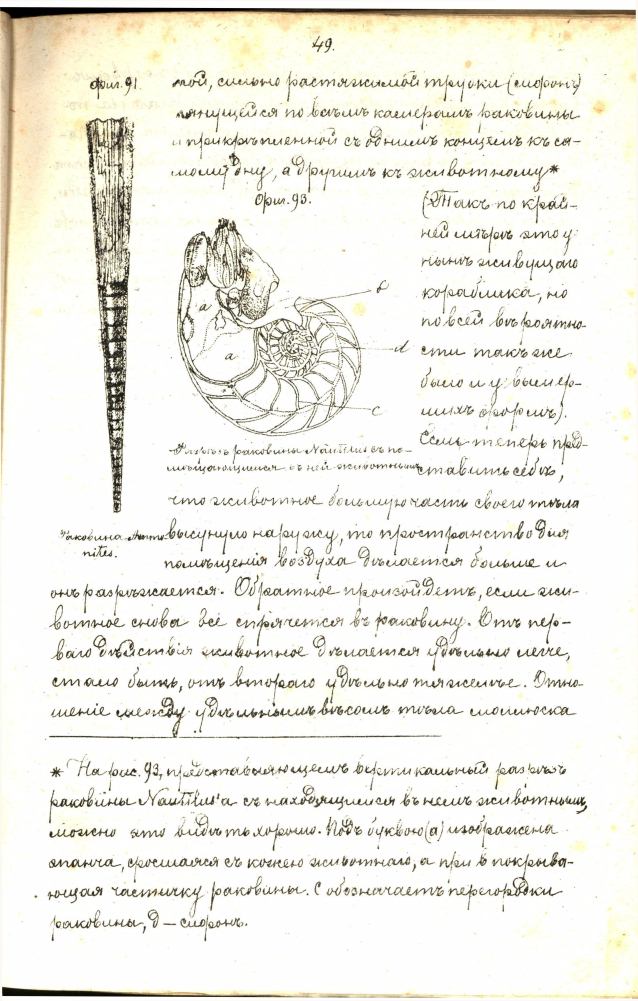 49.
Фиг. 91.
мой, сильно растяжимой трубки (сифонъ)
тянущейся по всѣмъ камерамъ раковины
и прикрѣпленной съ однимъ концемъ къ са-
мому дну, а другимъ къ животному*
Фиг. 93.
(Такъ по край-
ней мѣрѣ это у
нынѣ живущаго
кораблика, но
по всей вѣроятно-
сти такъ же
было и у вымер-
шихъ формъ).
Если теперь пред-
ставить себѣ,
a
a
b
d
c
Разрѣзъ раковины Nautilus съ по-
мѣщающимся въ ней животнымъ
Раковина Ammo-
nites.
что животное большую часть своего тѣла
высунуло наружу, то пространство для
помѣщенія воздуха дѣлается больше и
онъ разрѣжается. Обратное произойдетъ, если жи-
вотное снова всё спрячется въ раковину. Отъ пер-
ваго дѣйствія животное дѣлается удѣльно легче,
стало быть, отъ втораго удѣльно тяжелѣе. Отно-
шеніе между удѣльнымъ вѣсомъ тѣла моллюска
* На рис. 93, представляющемъ вертикальный разрѣзъ
раковины Nautilus'а съ находящимся въ немъ животнымъ,
можно это видѣть хорошо. Подъ буквою (а) изображена
эпанча, сросшаяся съ кожею животнаго, а при в покрыва-
ющая частичку раковины. С обозначаетъ перегородки
раковины, d — сифонъ.